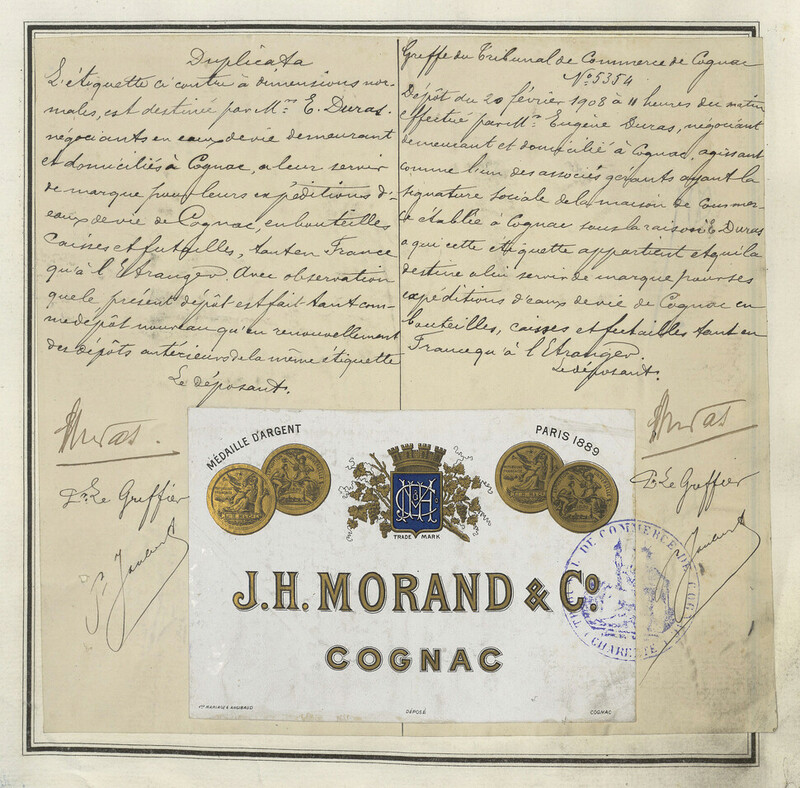 Duplicata
L'étiquette ci contre à dimensions nor-
males, est destinée par Mrs E. Duras.
négociants en eaux de vie demeurant
et domiciliés à Cognac, a leur servir
de marque pour leurs expéditions d'
eaux de vie de Cognac, en bouteilles
Caisses et futailles, tant en France
qu'à l'Etranger. Avec observation
que le présent dépôt est fait tant com-
me dépôt nouveau qu'en renouvellement
des dépôts antérieurs de la même etiquette
Le déposant.
Duras.
Pr Le Greffier
Greffe du Tribunal de Commerce de Cognac
No 5354
Dépôt du 20 février 1908 à 11 heures du matin
effectué par Mr Eugène Duras, négociant
demeurant et domicilié à Cognac, agissant
comme l'un des associés gérants ayant la
signature sociale de la maison de Commer-
ce établie à Cognac sous la raison E. Duras
a qui cette étiquette appartient et qui la
destine a lui servir de marque pour ses
expéditions d'eaux de vie de Cognac en
bouteilles, caisses et futailles tant en
France qu'à l'Etranger.
Le déposant.
Duras
Pr Le Greffier
MÉDAILLE D'ARGENT
PARIS 1889
TRADE MARK
J.H. MORAND & Co.
COGNAC
DÉPOSÉ
COGNAC
TRIBUNAL DE COMMERCE DE COGNAC
(CHARENTE)